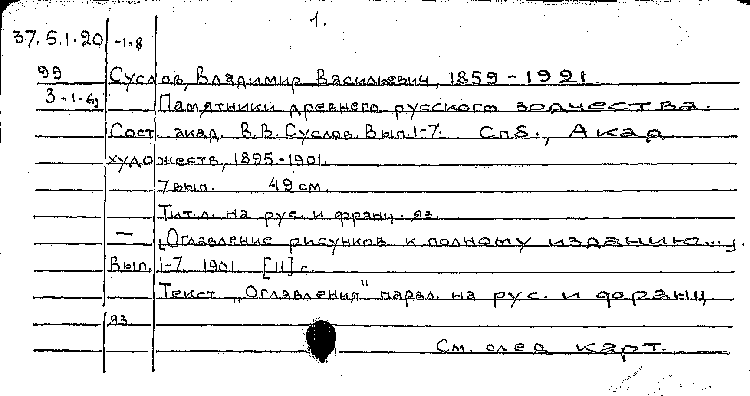 1.
37.5.1.20 -1.8
99 Суслов, Владимир Васильевич, 1859-1921
3-1-69 Памятники древнего русского зодчества.
Сост. акад. В.В. Суслов. Вып. 1-7. Спб., Акад.
художеств, 1895-1901.
7 вып. 49 см.
Тит. л. на рус. и франц. яз.
— [Оглавление рисунков к полному изданию...].
Вып. 1-7. 1901. [11] с.
Текст „Оглавления" парал. на рус. и франц.
яз.
См. след. карт.